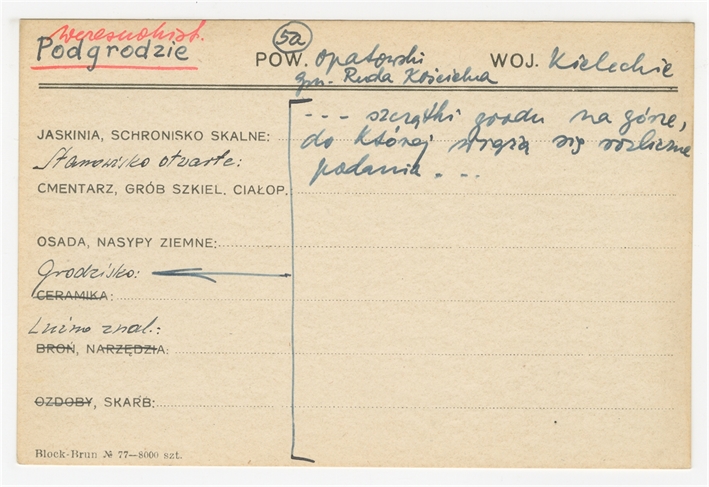 wczesnohist.
5a
Podgrodzie POW. opatowski WOJ. Kieleckie
gm. Ruda Kościelna
--- szczątki grodu na górze,
JASKINIA, SCHRONISKO SKALNE: do której wiążą się rozliczne
Stanowisko otwarte: podania . - .
CMENTARZ, GRÓB SZKIEL. CIAŁOP.
OSADA, NASYPY ZIEMNE:
Grodzisko:
CERAMIKA:
Luźne znal.:
BROŃ, NARZĘDZIA:
OZDOBY, SKARB:
Block-Brun № 77—8000 szt.